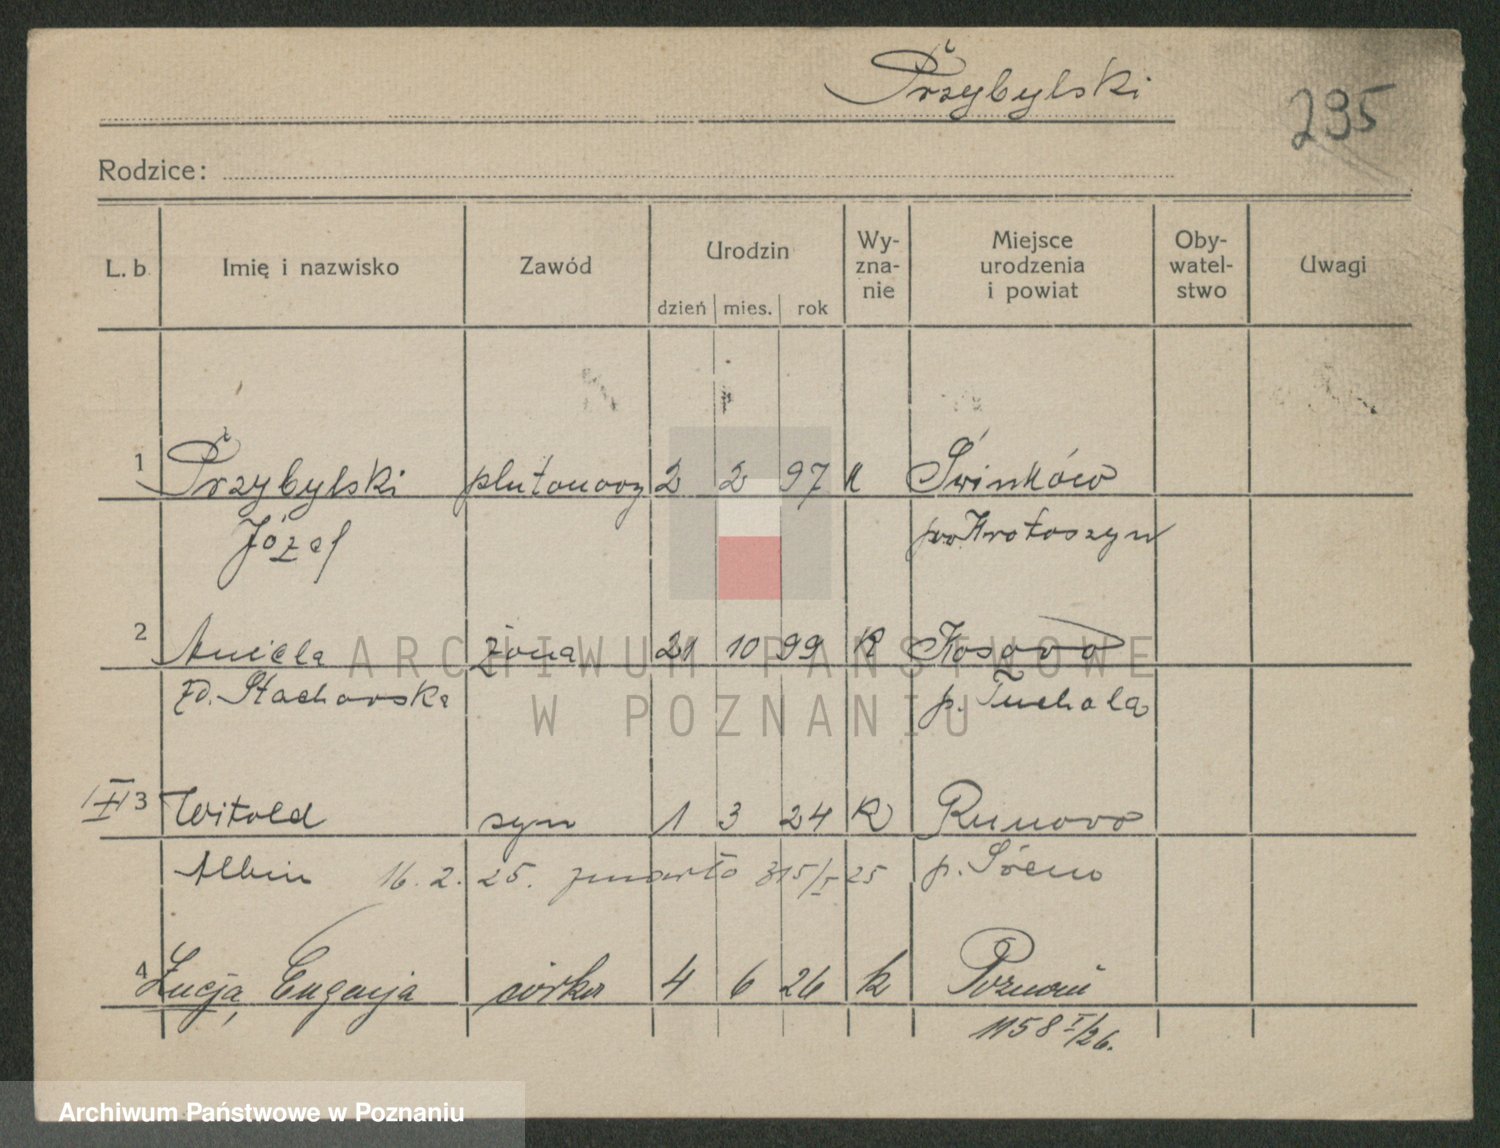 Przybylski
235
Rodzice:
L. b Imię i nazwisko Zawód Urodzin dzień mies. rok Wy-zna-nie Miejsce urodzenia i powiat Oby-watel-stwo Uwagi
1 Przybylski plutonowy 2 2 97 K Świnków
Józef pow Krotoszyn
2 Aniela żona 21 10 99 K Kosowo
zd. Stachowska p. Tuchola
3 Witold syn 1 3 24 K Runowo
Albin 16. 2. 25. zmarło 315/I 25 p. Śrem
4 Łucja, Eugenja córka 4 6 26 k Poznań
1158 I/26.
ARCHIWUM PAŃSTWOWE
W POZNANIU
Archiwum Państwowe w Poznaniu